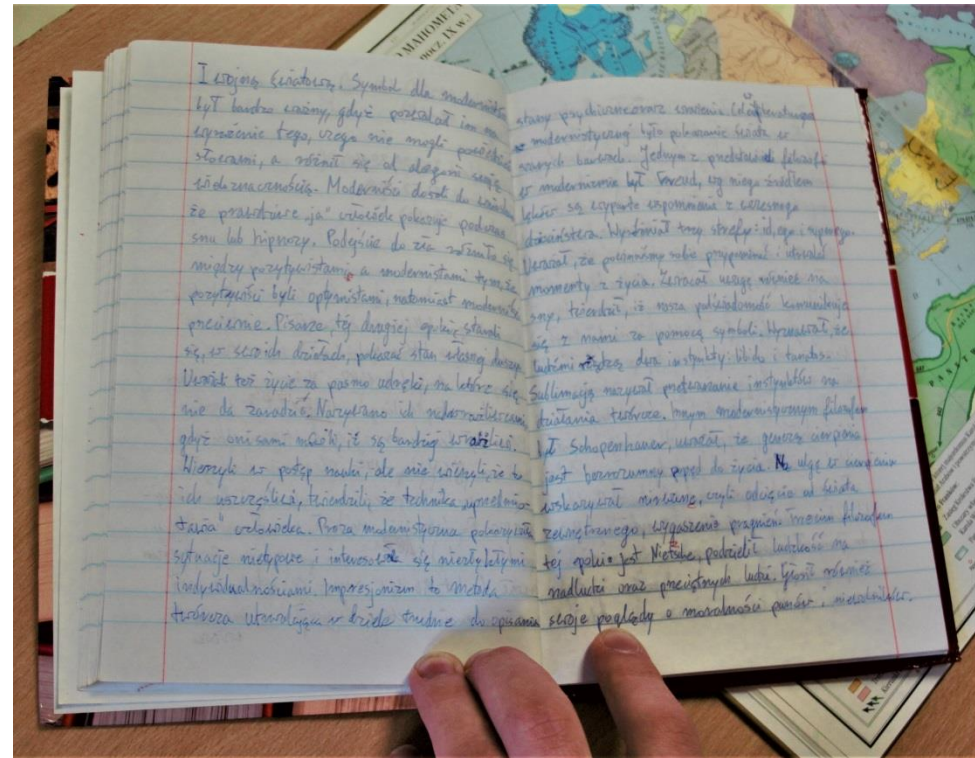 I wojną światową. Symbol dla modernistów
był bardzo ważny, gdyż pozwalał im na
wyrażenie tego, czego nie mogli powiedzieć
słowami, a różnił się od alegorii swoją
wieloznacznością. Moderniści doszli do wniosku
że prawdziwe "ja" człowiek pokazuje podczas
snu lub hipnozy. Podejście do zła różniło się
między pozytywistami, a modernistami tym, że
pozytywiści byli optymistami, natomiast moderniści
przeciwnie. Pisarze, tej drugiej epoki, starali
się, w swoich dziełach, pokazać stan własnej duszy.
Uważali też życie za pasmo udręki, na które się
nie da zaradzić. Nazywano ich
gdyż oni sami mówili, iż są bardziej wrażliwi.
Wierzyli w postęp nauki, ale nie wierzyli, że to
ich uszczęśliwi, twierdzili, że technika
człowieka. Proza modernistyczna pokazywała
sytuacje nietypowe i interesowała się niezwykłymi
indywidualnościami. Impresjonizm to metoda
twórcza utrwalająca w dziele trudne do opisania
stany psychiczne oraz wrażenia.
modernistycznej było pokazanie świata w
szarych barwach. Jednym z filozofii
w modernizmie był Freud, wg niego źródłem
lęków są wyparte wspomnienia z wczesnego
dzieciństwa. Wyróżniał trzy strefy: id, ego i superego.
Uważał, że powinniśmy sobie przypominać i utrwalać
momenty z życia. Zwracał uwagę również na
sny, twierdził, iż nasza podświadomość komunikuje
się z nami za pomocą symboli. Wyznawał, że
ludźmi rządzą dwa instynkty: libido i tanatos.
Sublimacją nazywał przetwarzanie instynktów na
działania twórcze. Innym modernistycznym filozofem
był Schopenhauer, uważał, że genezą cierpienia
jest bezrozumny popęd do życia. Na ulgę w cierpieniu
wskazywał nirwanę, czyli odcięcie od świata
zewnętrznego, wygaszenie pragnień. Trzecim filozofem
tej epoki jest Nietsche, podzielił ludzkość na
nadludzi oraz przeciętnych ludzi. Głosił również
swoje poglądy o moralności panów i niewolników.
MAHOMETA
POCZ. IX W.)